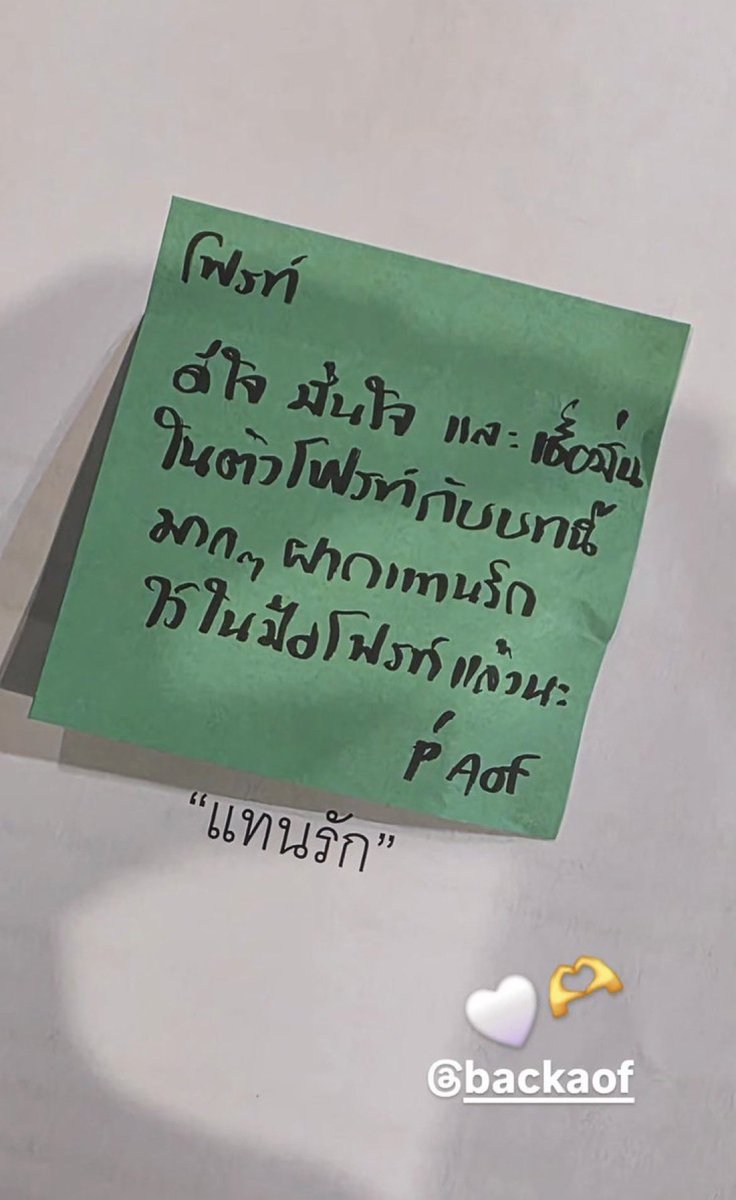 โฟรท์
ดีใจ มั่นใจ และ เชื่อมั่น
ในตัวโฟรท์กับบทนี้
มากๆ ฝากแทนรัก
ไว้ในมือโฟรท์แล้วนะ
P' Aof
“แทนรัก”
@backaof